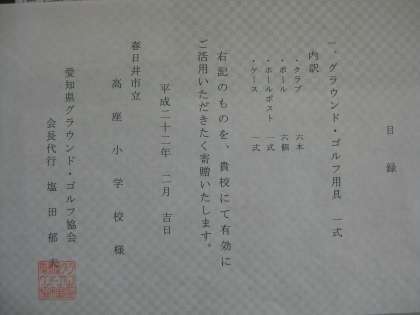 目録
一、グラウンド・ゴルフ用具 一式
内訳
・クラブ 六本
・ボール 六個
・ホールポスト 一式
・ケース 一式
右記のものを、貴校にて有効に
ご活用いただきたく寄贈いたします。
平成二十二年 二月 吉日
春日井市立
高座小学校様
愛知県グラウンド・ゴルフ協会
会長代行 塩田郁夫